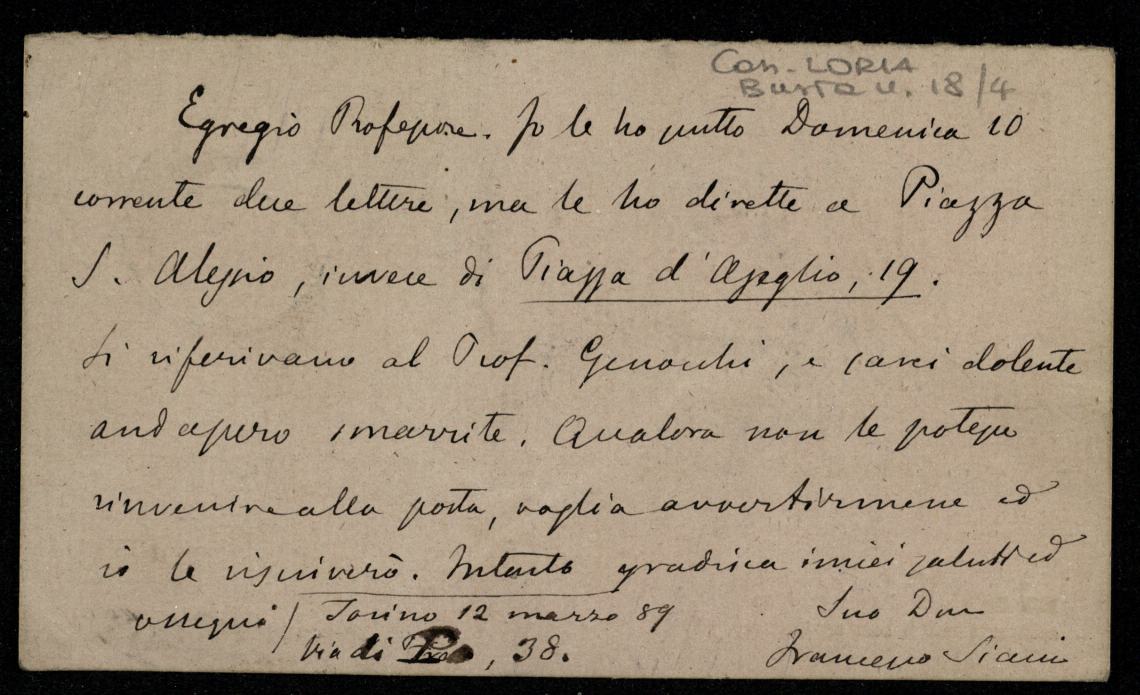 Con. LORIA
Busta n. 18/4
Egregio Professore. Io le ho scritto Domenica 10
corrente due lettere, ma le ho dirette a Piazza
S. Alessio, invece di Piazza d'Azeglio, 19.
Si riferivano al Prof. Genocchi, e sarei dolente
andassero smarrite. Qualora non le potesse
rinvenire alla posta, voglia avvertirmene ed
io le riscriverò. Intanto gradisca i miei saluti ed
ossequi / Torino 12 marzo 89 Suo Dev
Via di , 38. Francesco Siacci